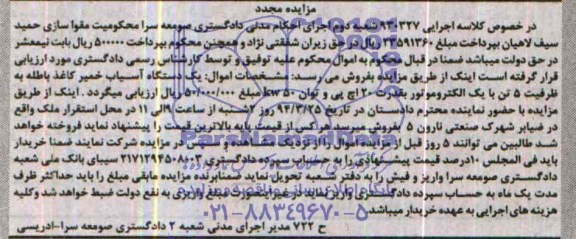 مزایده مجدد
در خصوص کلاسه اجرایی ۹۳۰۳۲۷ شعبه دوم اجرای احکام مدنی دادگستری صومعه سرا محکومیت مقوا سازی حمید
سیف لاهیان بپرداخت مبلغ ۲۳۵۹۱۳۶۰ ریال در حق زیران شفقتی نژاد و همچنین محکوم بپرداخت ۵۰۰۰۰۰ ریال بابت نیمعشر
در حق دولت میباشد ضمنا در قبال محکوم به اموال محکوم علیه توقیف و توسط کارشناس رسمی دادگستری مورد ارزیابی
قرار گرفته است اینک از طریق مزایده بفروش می رسد: مشخصات اموال: یک دستگاه آسیاب خمیر کاغذ باطله به
ظرفیت ۵ تن با یک الکتروموتور بقدرت ۴۰ اچ پی و توان kw 50 مبلغ ۵۰/۰۰۰/۰۰۰ ریال ارزیابی میگردد . اینک از طریق
مزایده با حضور نماینده محترم دادستان در تاریخ ۹۴/۳/۲۵ روز ۲شنبه از ساعت ۹الی ۱۱ در محل استقرار ملک واقع
در ضیابر شهرک صنعتی نارون ۵ بفروش میرسد هرکس از قیمت پایه بالاترین قیمت را پیشنهاد نماید فروخته خواهد
شد طالبین می توانند ۵ روز قبل از مزایده اموال را از نزدیک مشاهده و سپس در مزایده شرکت نمایند ضمنا خریدار
باید فی المجلس ۱۰درصد قیمت پیشنهادی را به حساب سپرده دادگستری سیبای بانک ملی شعبه
دادگستری صومعه سرا واریز و فیش را به دفتر شعبه تحویل نماید ضمنابرنده مزایده مابقی مبلغ را باید حداکثر ظرف
مدت یک ماه به حساب سپرده دادگستری واریز نماید درغیر اینصورت مبلغ واریزی به نفع دولت ضبط خواهد شد وکلیه
هزینه های اجرایی به عهده خریدار میباشد.
ح ۷۲۲ مدیر اجرای مدنی شعبه ۲ دادگستری صومعه سرا-ادریسی
۰۲۱-۸۸۳۴۹۶۷۰-۵